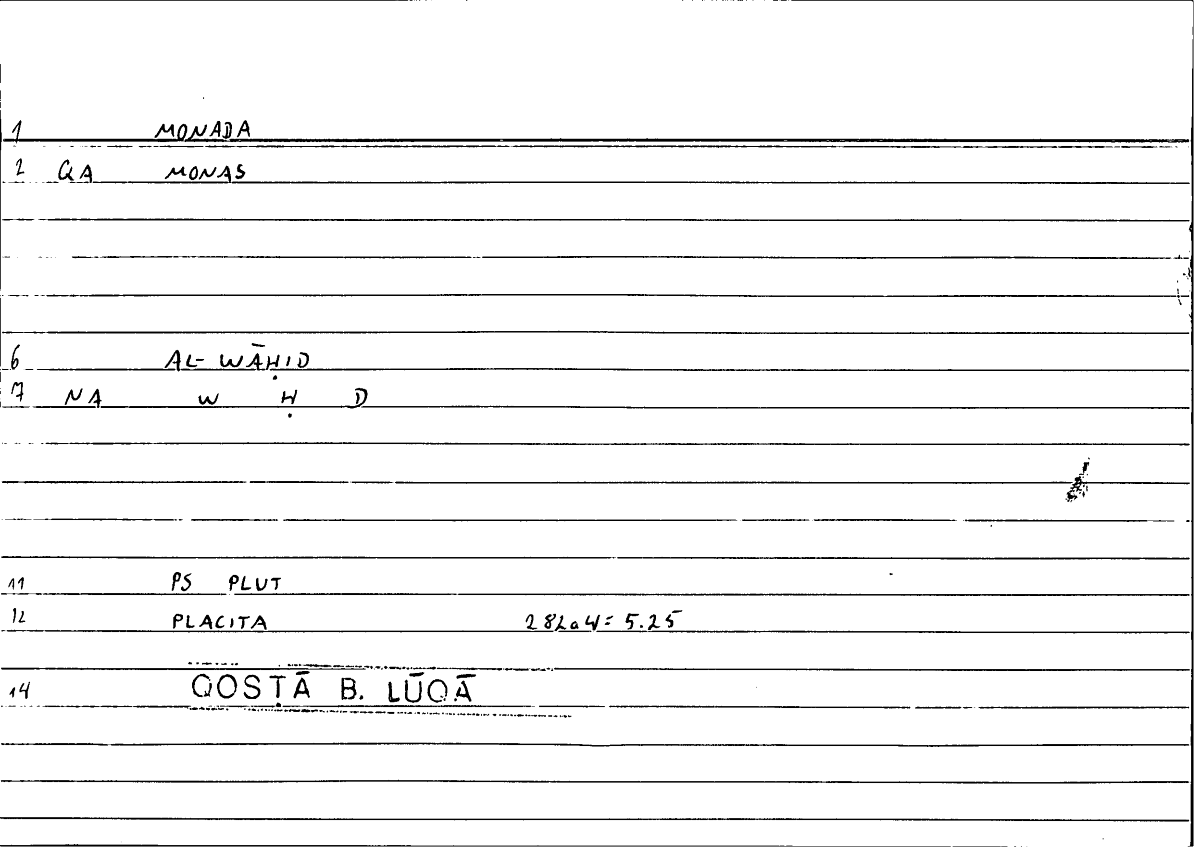 1 MONADA
2 QA MONAS
6 AL-WĀḤID
7 NA W Ḥ D
11 PS PLUT
12 PLACITA 282a4= 5.25
14 QOSṬĀ B. LŪQĀ